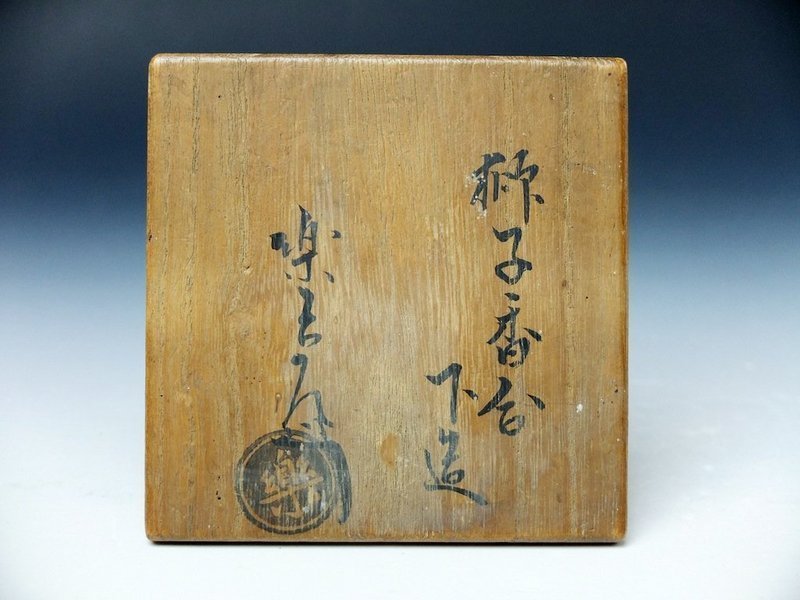 獅子香合
下造
樂吉左衛門
樂